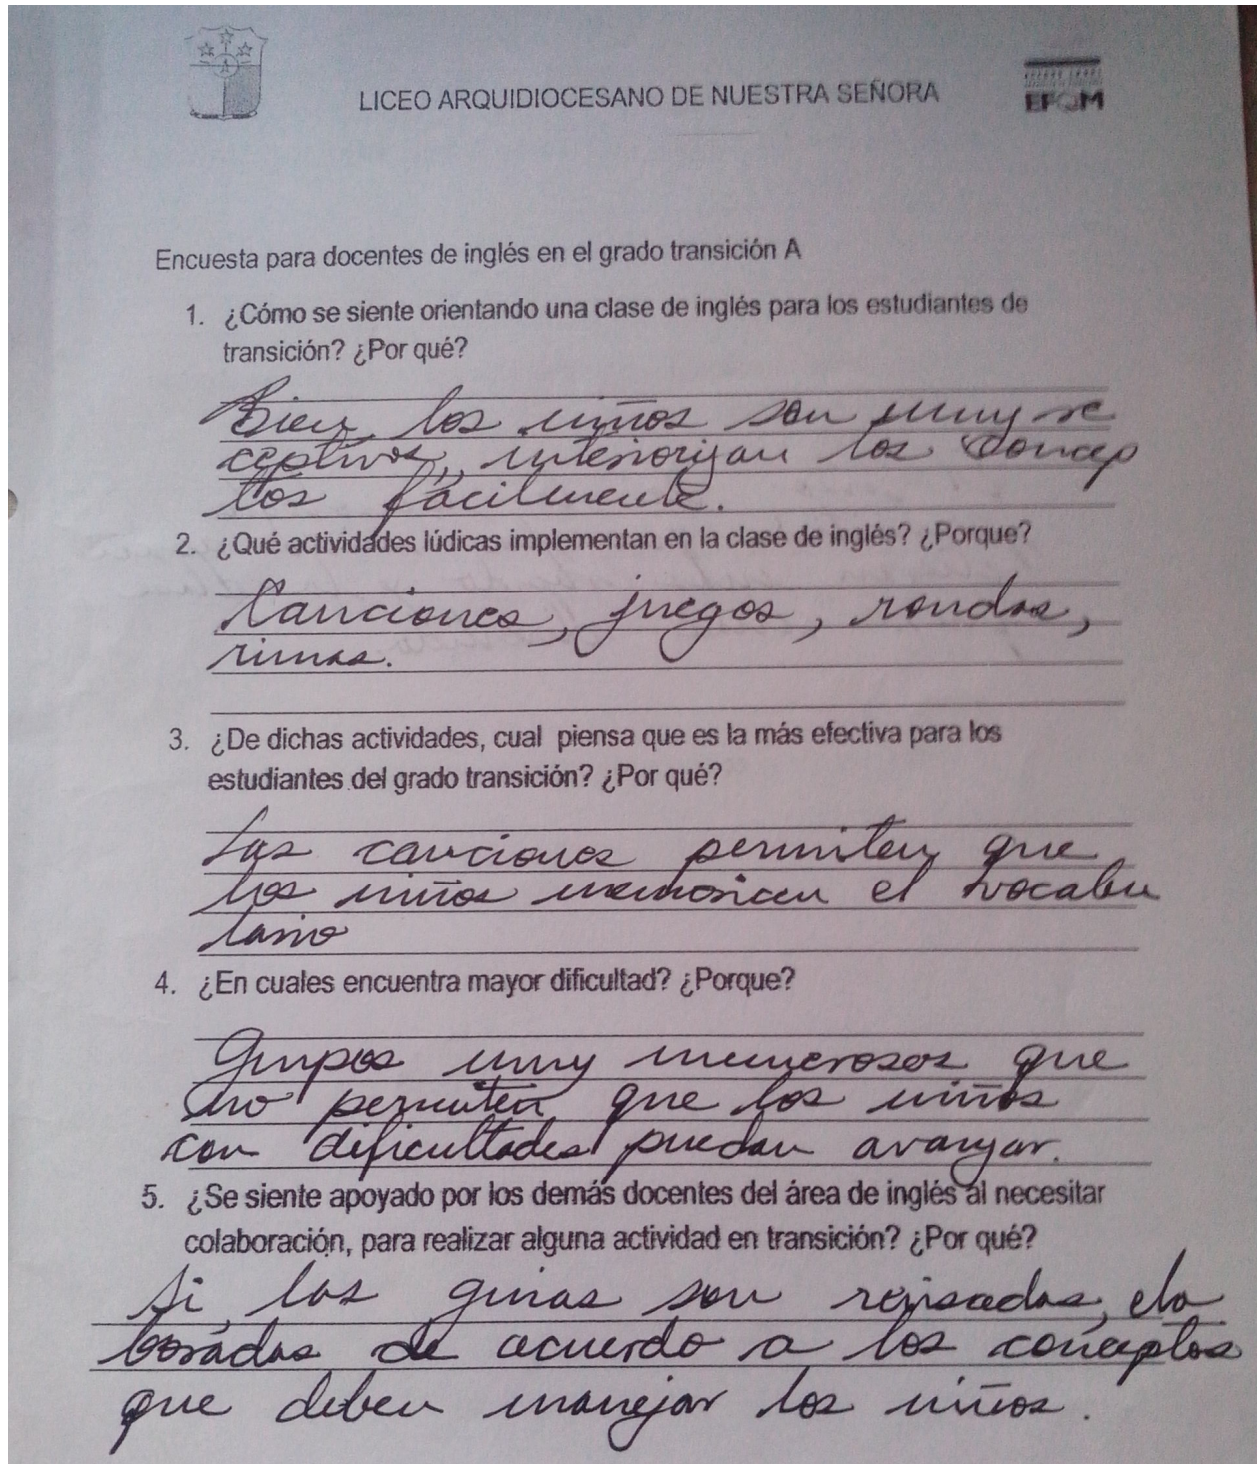 LICEO ARQUIDIOCESANO DE NUESTRA SEÑORA
EFQM
Encuesta para docentes de inglés en el grado transición A
1. ¿Cómo se siente orientando una clase de inglés para los estudiantes de
transición? ¿Por qué?
Bien, los niños son muy re
ceptivos, interiorizan los concep
tos fácilmente.
2. ¿Qué actividades lúdicas implementan en la clase de inglés? ¿Porque?
Canciones, juegos, rondas,
rimas.
3. ¿De dichas actividades, cual piensa que es la más efectiva para los
estudiantes del grado transición? ¿Por qué?
Las canciones permiten que
los niños memoricen el vocabu
lario
4. ¿En cuales encuentra mayor dificultad? ¿Porque?
Grupos muy numerosos que
no permiten que los niños
con dificultades puedan avanzar.
5. ¿Se siente apoyado por los demás docentes del área de inglés al necesitar
colaboración, para realizar alguna actividad en transición? ¿Por qué?
Si, las guias son revisadas, ela
boradas de acuerdo a los conceptos
que deben manejar los niños.